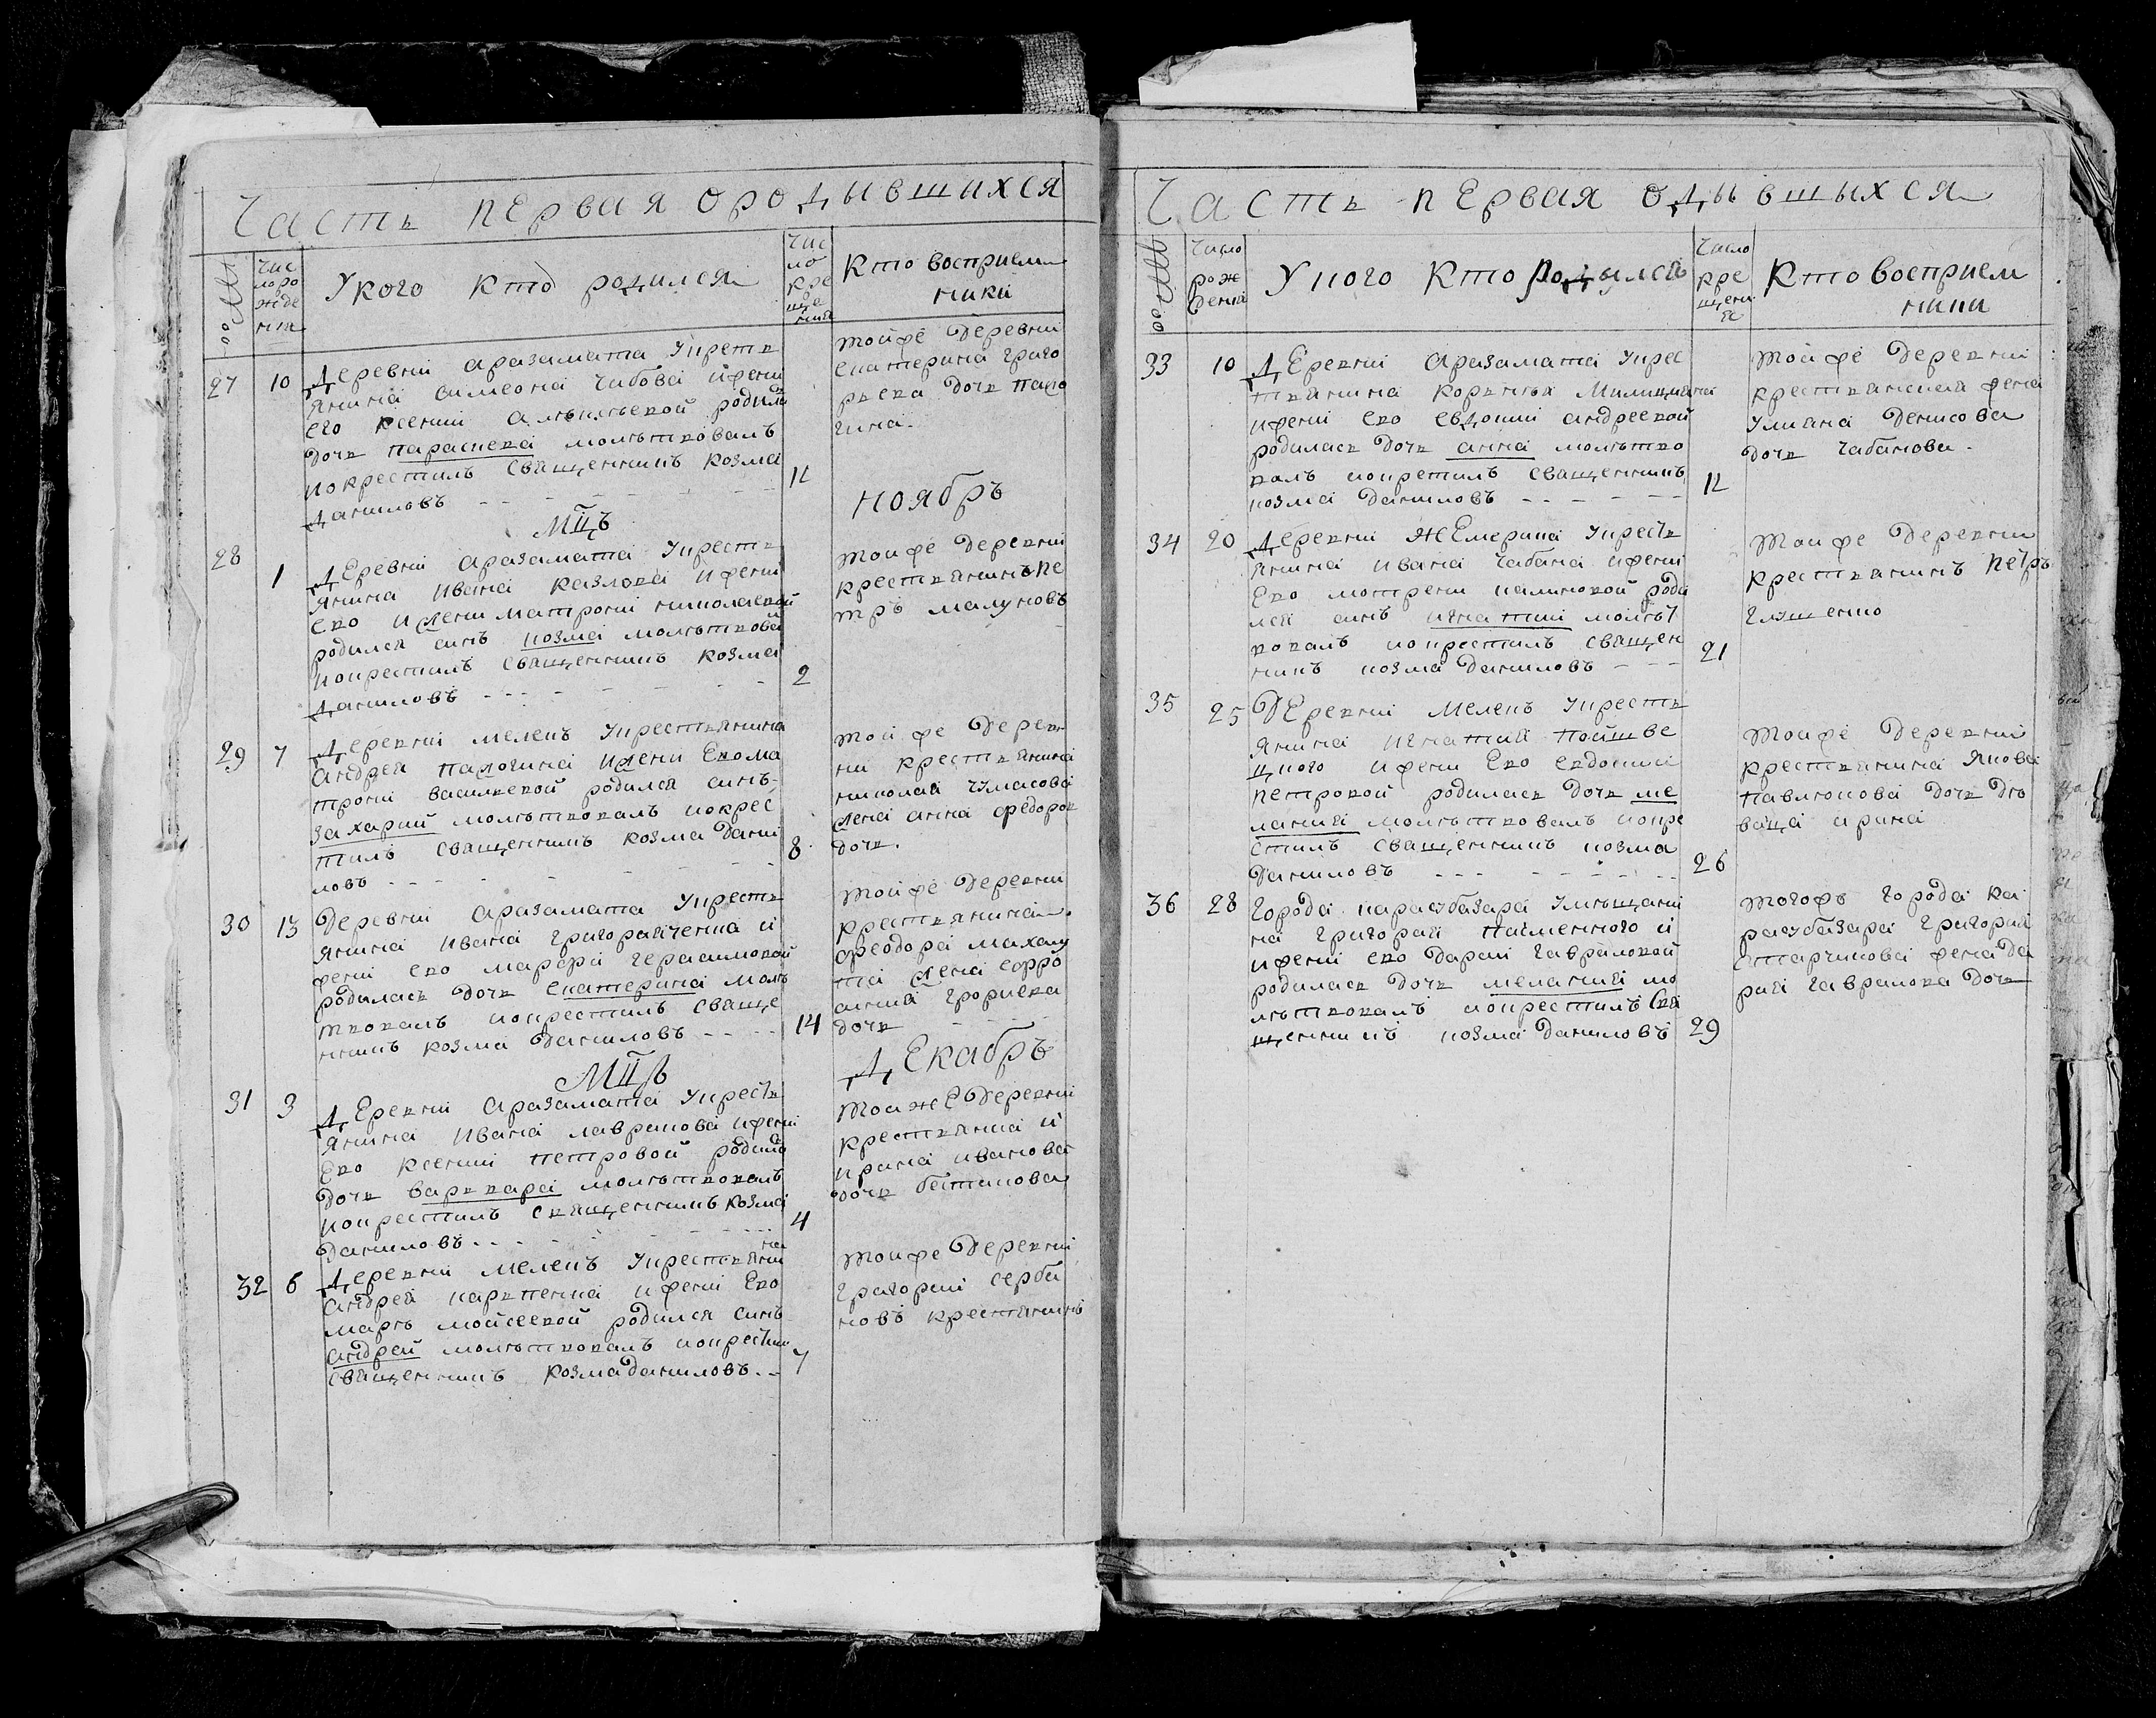 Часть первая ородывшихся
№№
Чис
лоро
жде
ния
Укого кто родился
Чис
ло
кре
ще
ния
Кто восприем
ники
27 10 Деревни аразамата укрестъ
янина симеона чабова ижени
его ксении родила
дочъ параскева молитвовалъ
икрестилъ священникъ козма
Даниловъ 11
тойже деревни
екатерина григо
рьева дочъ пало
гина.
Мцъ ноябръ
28 1 Деревни аразамата укрестъ
янина ивана казлова ижени
ево матрони николаевой
родился синъ козма молитвова
икрестилъ священникъ козма
Даниловъ 2
тойже деревни
крестъянинъ пе
тръ малуновъ
29 7 Деревни мелекъ укрестъянина
андрея палогина ижени Евома
трони василъевой родился синъ
захарий молитвовалъ икрес
тилъ священникъ козма дани
ловъ 8
той же дерев
ни крестъянина
николая чумасова
жена анна федоров
дочъ.
30 13 Деревни аразамата укрестъ
янина ивана григорайченка и
жени ево марфи герасимовой
родилась дочъ екатерина моли
твовалъ икрестилъ свяще
нникъ козма Даниловъ 14
тойже деревни
крестъянина
феодора махалу
па жена софро
дочъ
Мцъ Декабръ
31 3 Деревни аразамата укрестъ
янина ивана лаврикова ижени
Ево ксении петровой родила
дочъ варвара молитвовалъ
икрестилъ священникъ козма
Даниловъ 4
тоижЕ деревни
крестъянка и
ирина иванова
дочъ баташова
32 6 Деревни мелекъ укрестъянина
андрея карпенка ижени Ево
марѣ мойсеевой родился синъ
андрей молитвовалъ икрестил
священникъ козма Даниловъ 7
тойже деревни
григорий серба
новъ крестянинъ
Часть пЕрвая одывшыхся
№№
Число
рож
дения
У кого Кто Родылся
Число
кре
щени
я
Кто восприем
ники
33 10 ДЕревни Аразамата укрес
тъянина корънѣя
ижени ево евдокии андреевой
родилась дочъ анна молитво
валъ икретилъ священникъ
козма Даниловъ 11
тойже деревни
крестъянская жена
улияна денисова
дочъ чабанова.
34 20 Деревни ЖЕмерина укресть
янина ивана чабана ижени
Ево мотрени калиновой роди
лся синъ игнатий молит
вовалъ икрестилъ священ
никъ козма Даниловъ 21
тойже деревни
крестъянинъ петръ
глущенко
35 25 ДЕревни мелекъ укрестъ
янина игнатия
ижени Ево евдокии
петровой родилась дочъ ме
лания молитвовалъ икре
стилъ священникъ козма
Даниловъ 26
тойже деревни
крестъянина якова
павлюкова дочъ дѣ
вица ирина
36 28 города карасубазара умѣщани
на григория пасменного и
ижени ево дарии гавриловой
родилась дочъ мелания мо
литвовалъ икрестилъ свя
щенникъ козма Даниловъ 29
тогожъ города ка
расубазара григория
старчикова жена да
рия гаврилова дочъ